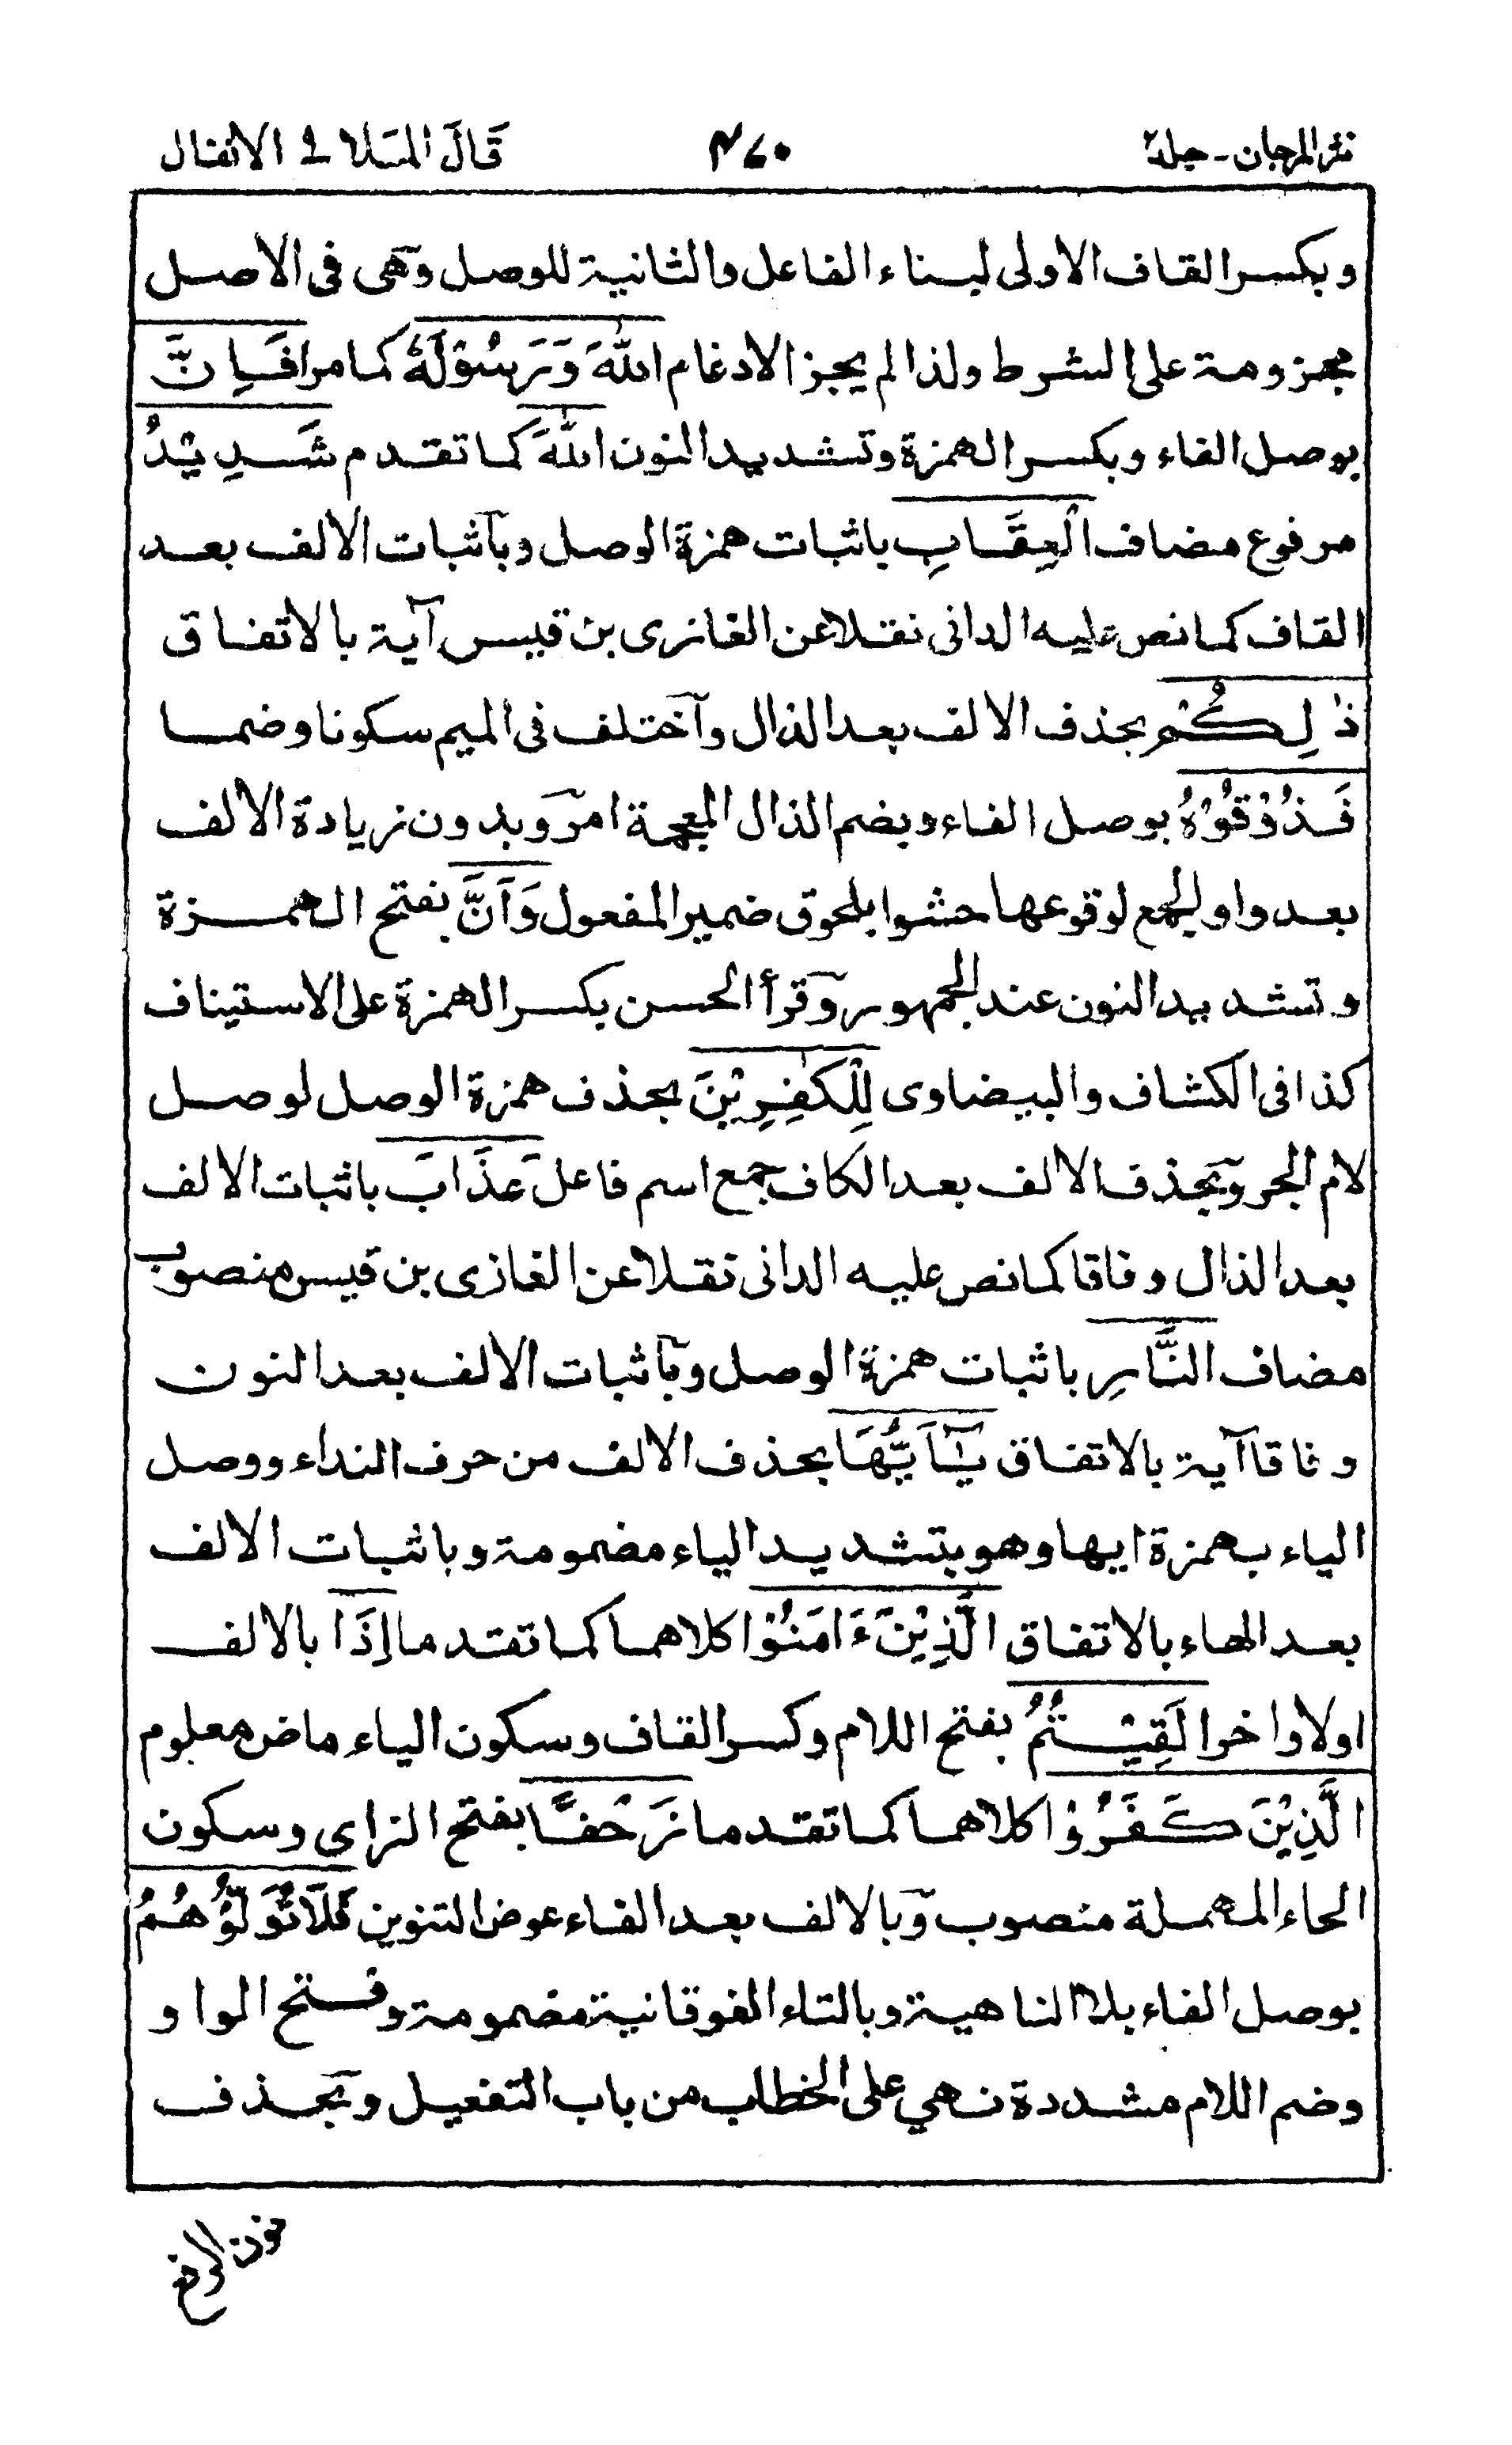 نثر المرجان - جلد ٢
٤٧٠
قَالَ المَلَأ الانفال
وبكسر القاف الاولى لبناء الفاعل والثانية للوصل وهى فى الاصل
مجزومة على الشرط ولذا لم يجز الادغام اللّٰهَ وَرَسُوْلَهٗ كما مر فَاِنَّ
بوصل الفاء وبكسر الهمزة وتشديد النون اللّٰهَ كما تقدم شَدِيْدُ
مرفوع مضاف الْعِقَابِ باثبات همزة الوصل وبآثبات الالف بعد
القاف كما نص عليه الدانى نقلا عن الغازى بن قيس آية بالاتفاق
ذٰلِكُمْ بحذف الالف بعد الذال وآختلف فى الميم سكونا وضما
فَذُوْقُوْهُ بوصل الفاء وبضم الذال المعجمة امر وبدون زيادة الالف
بعد واو الجمع لوقوعها حشوا بلحوق ضمير المفعول وَاَنَّ بفتح الهمزة
وتشديد النون عند الجمهور وقرأ الحسن بكسر الهمزة على الاستيناف
كذا فى الكشاف والبيضاوى لِلْكٰفِرِيْنَ بحذف همزة الوصل لوصل
لام الجر وبحذف الالف بعد الكاف جمع اسم فاعل عَذَابَ باثبات الالف
بعد الذال وفاقا كما نص عليه الدانى نقلا عن الغازى بن قيس منصوب
مضاف النَّارِ باثبات همزة الوصل وبآثبات الالف بعد النون
وفاقا آية بالاتفاق يٰٓاَيُّهَا بحذف الالف من حرف النداء ووصل
الياء بهمزة ايها وهو بتشديد الياء مضمومة وباثبات الالف
بعد الهاء بالاتفاق الَّذِيْنَ ءَامَنُوْا كلاهما كما تقدما اِذَا بالالف
اولا واخرا لَقِيْتُمُ بفتح اللام وكسر القاف وسكون الياء ماض معلوم
الَّذِيْنَ كَفَرُوْا كلاهما كما تقدما زَحْفًا بفتح الزاى وسكون
الحاء المهملة منصوب وبالالف بعد الفاء عوض التنوين فَلَا تُوَلُّوْهُمُ
بوصل الفاء بلا الناهية وبالتاء الفوقانية مضمومة وفتح الواو
وضم اللام مشددة نهي على الخطاب من باب التفعيل وبحذف